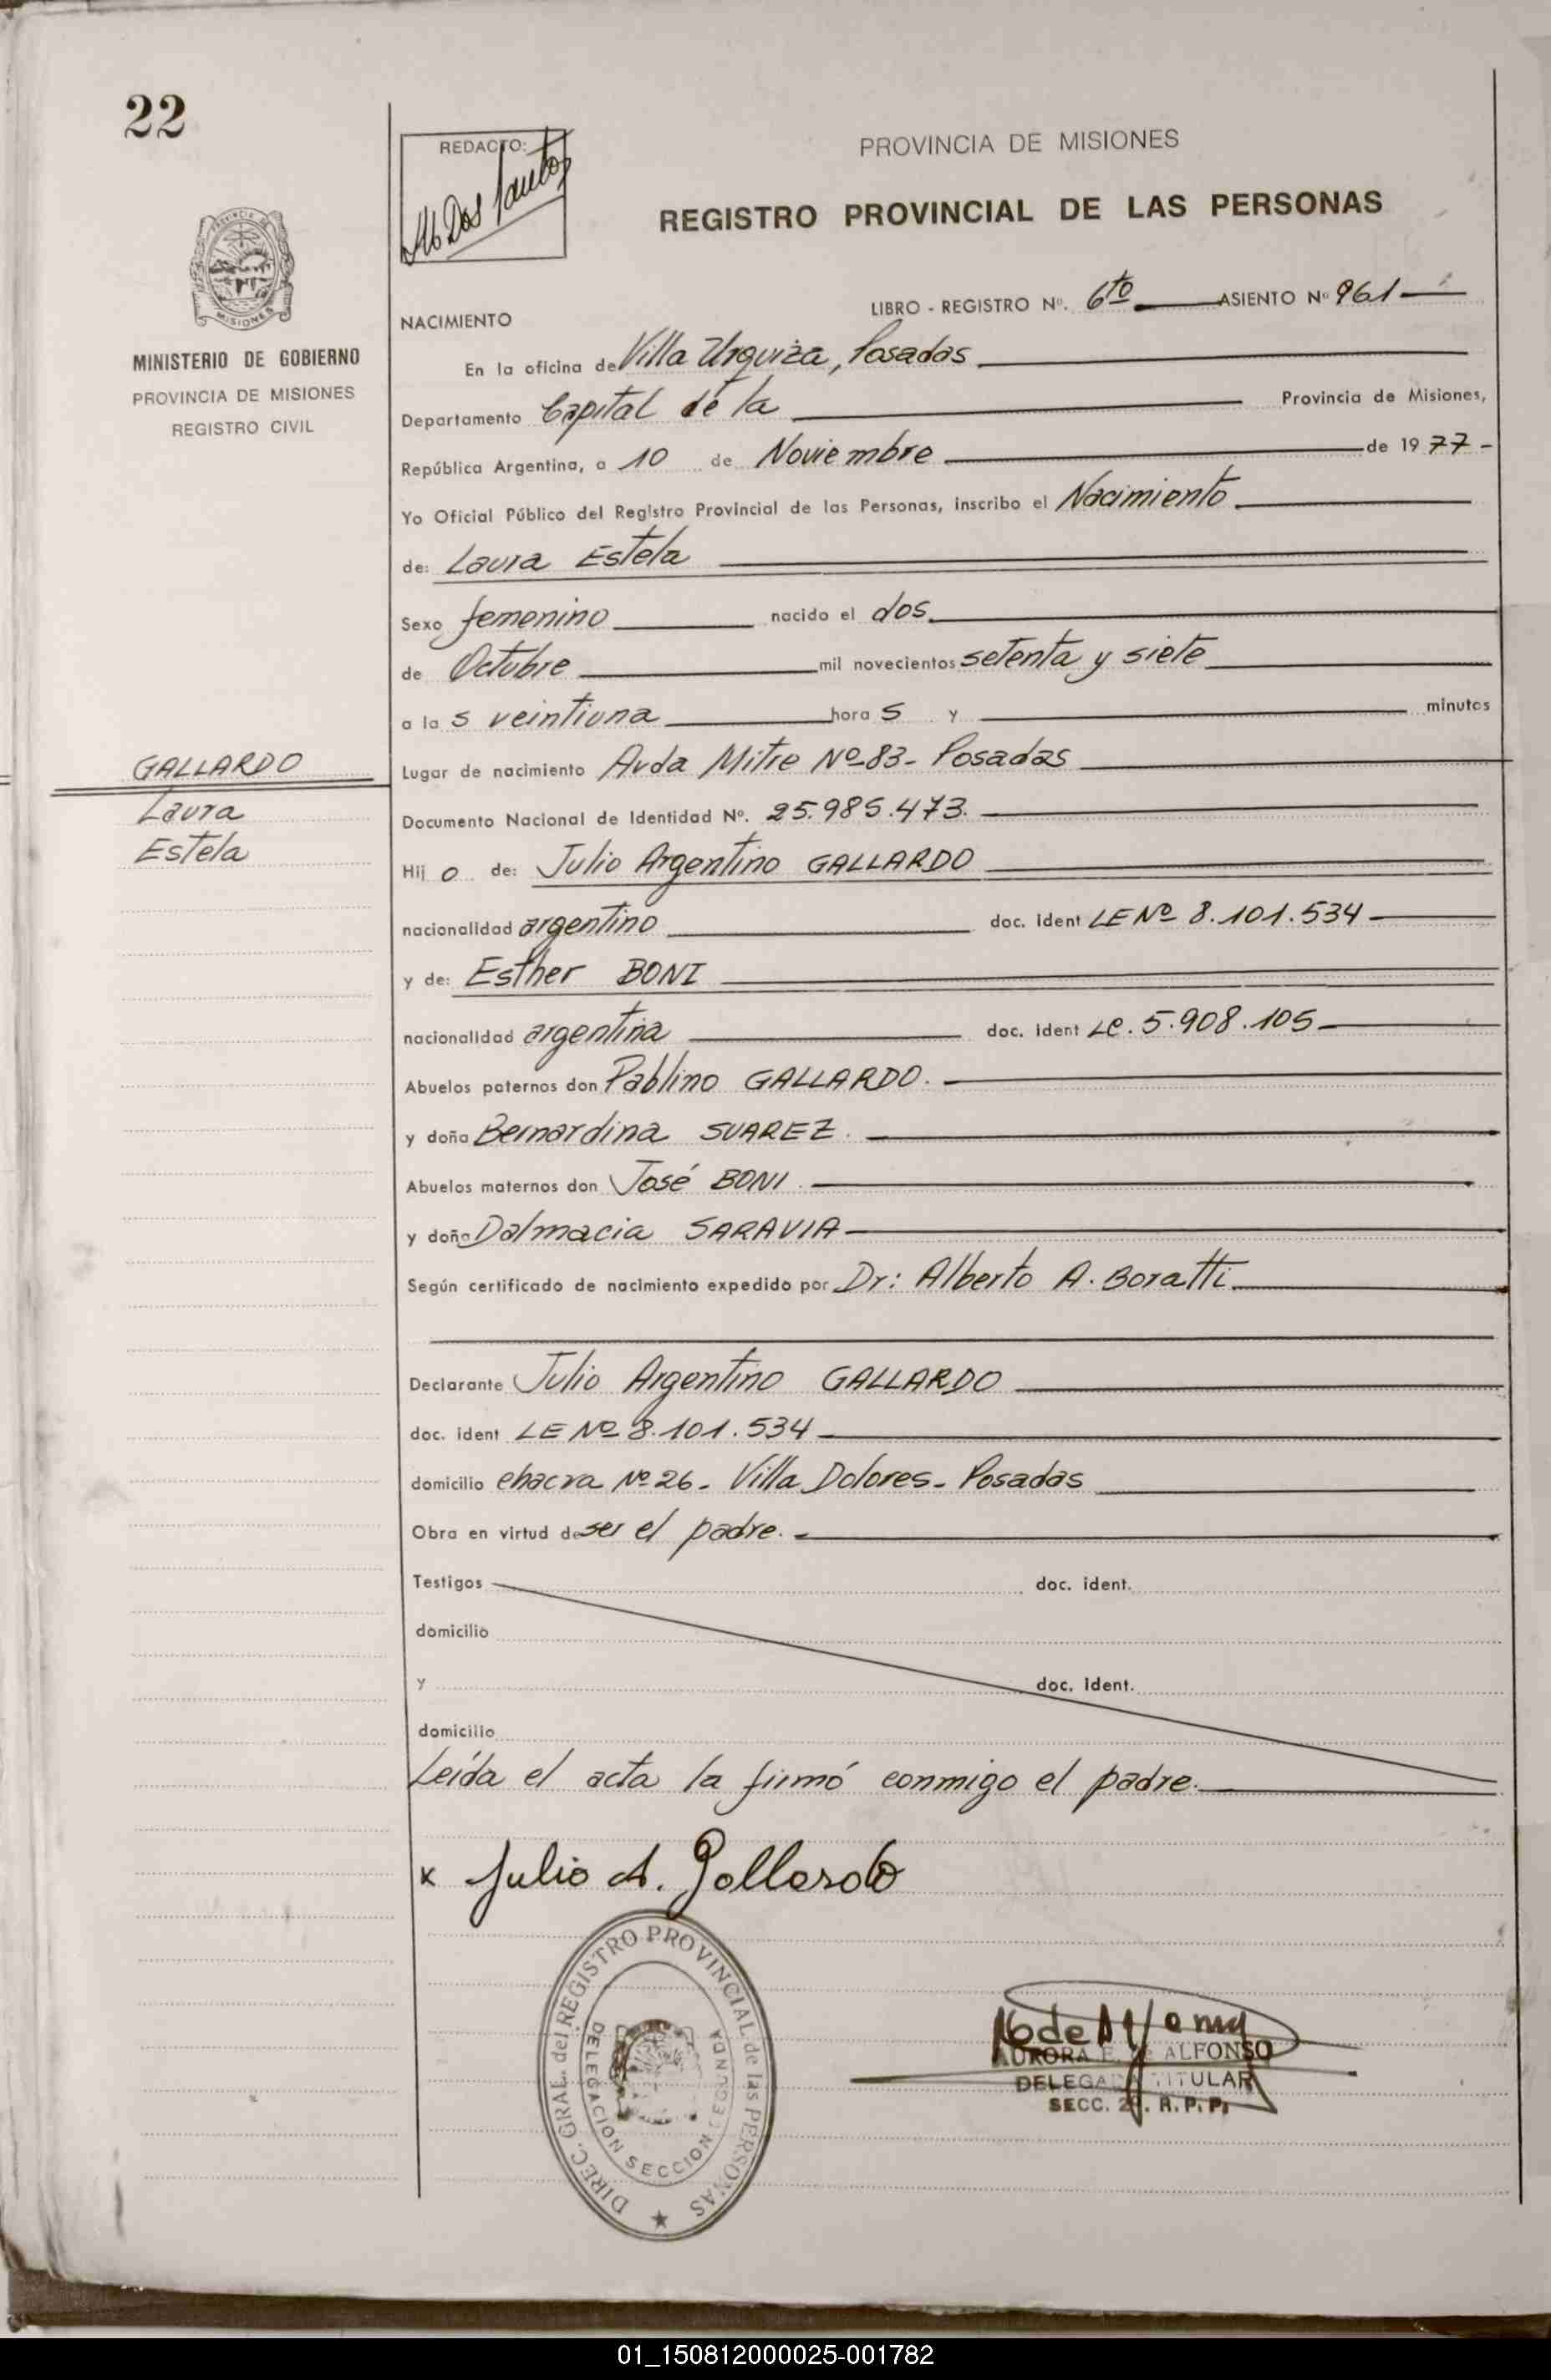 22
REDACTO:
M Dos Santos
PROVINCIA DE MISIONES
REGISTRO PROVINCIAL DE LAS PERSONAS
PROVINCIA DE
MISIONES
MINISTERIO DE GOBIERNO
PROVINCIA DE MISIONES
REGISTRO CIVIL
LIBRO - REGISTRO Nº. 6to ASIENTO Nº 961
NACIMIENTO
En la oficina de Villa Urquiza, Posadas
Departamento Capital de la Provincia de Misiones,
República Argentina, a 10 de Noviembre de 1977-
Yo Oficial Público del Registro Provincial de las Personas, inscribo el Nacimiento
de: Laura Estela
Sexo femenino nacido el dos
de Octubre mil novecientos setenta y siete
a las veintiuna horas y minutos
GALLARDO
Laura
Estela
Lugar de nacimiento Avda Mitre Nº 83- Posadas
Documento Nacional de Identidad Nº. 25.985.473.
Hijo de: Julio Argentino GALLARDO
nacionalidad argentino doc. ident LE Nº 8.101.534
y de: Esther BONI
nacionalidad argentina doc. ident Lc. 5.908.105
Abuelos paternos don Pablino GALLARDO.
y doña Bernardina SUAREZ.
Abuelos maternos don José BONI.
y doña Dalmacia SARAVIA
Según certificado de nacimiento expedido por Dr: Alberto A. Boratti
Declarante Julio Argentino GALLARDO
doc. ident LE Nº 8.101.534
domicilio chacra Nº 26- Villa Dolores- Posadas
Obra en virtud de ser el padre.
Testigos doc. ident.
domicilio
y doc. ident.
domicilio
Leída el acta la firmó conmigo el padre.
x Julio A. Gallardo
DIREC. GRAL. del REGISTRO PROVINCIAL de las PERSONAS
DELEGACION SECCION SEGUNDA
AURORA E. DE ALFONSO
DELEGADA TITULAR
SECC. 2ª. R.P.P.
01_150812000025-001782